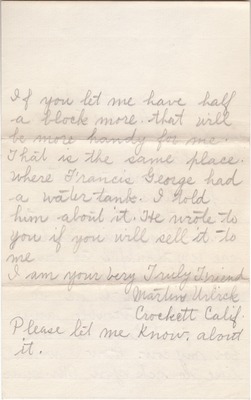 If you let me have half
a block more. that will
be more handy for me.
That is the same place.
where Francis George had
a water tank. I told
him about it. He wrote to
you if you will sell it to
me
I am your Very Truly Friend
Martin
Crockett Calif.
Please let me know, about
it.